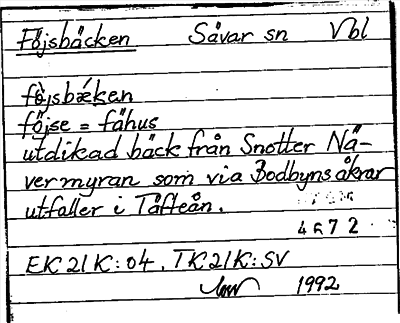 Föjsbäcken Sävar sn Vbl
föjsbǽken
föjse = fähus
utdikad bäck från Snotter Nä-
vermyran som via Bodbyns åkrar
utfaller i Täfteån.
4672
EK 21K:04. TK21K:SV
1992